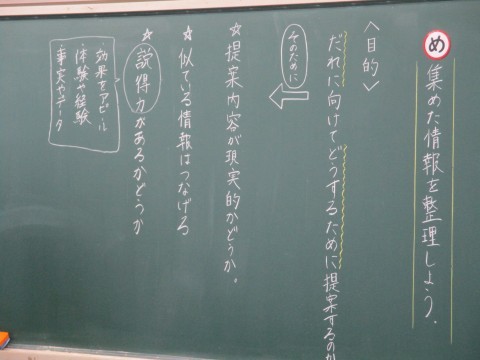 め 集めた情報を整理しよう.
<目的>
だれに向けてどうするために提案するのか
そのために
☆提案内容が現実的かどうか。
☆似ている情報はつなげる
☆説得力があるかどうか
・効果をアピール
・体験や経験
・事実やデータ